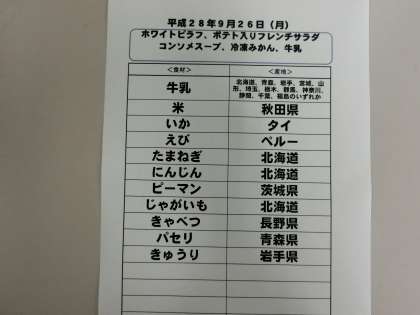 平成28年9月26日（月）
ホワイトピラフ、ポテト入りフレンチサラダ
コンソメスープ、冷凍みかん、牛乳
＜食材＞ ＜産地＞
牛乳 北海道、青森、岩手、宮城、山
形、埼玉、栃木、群馬、神奈川、
静岡、千葉、福島のいずれか
米 秋田県
いか タイ
えび ペルー
たまねぎ 北海道
にんじん 北海道
ピーマン 茨城県
じゃがいも 北海道
きゃべつ 長野県
パセリ 青森県
きゅうり 岩手県